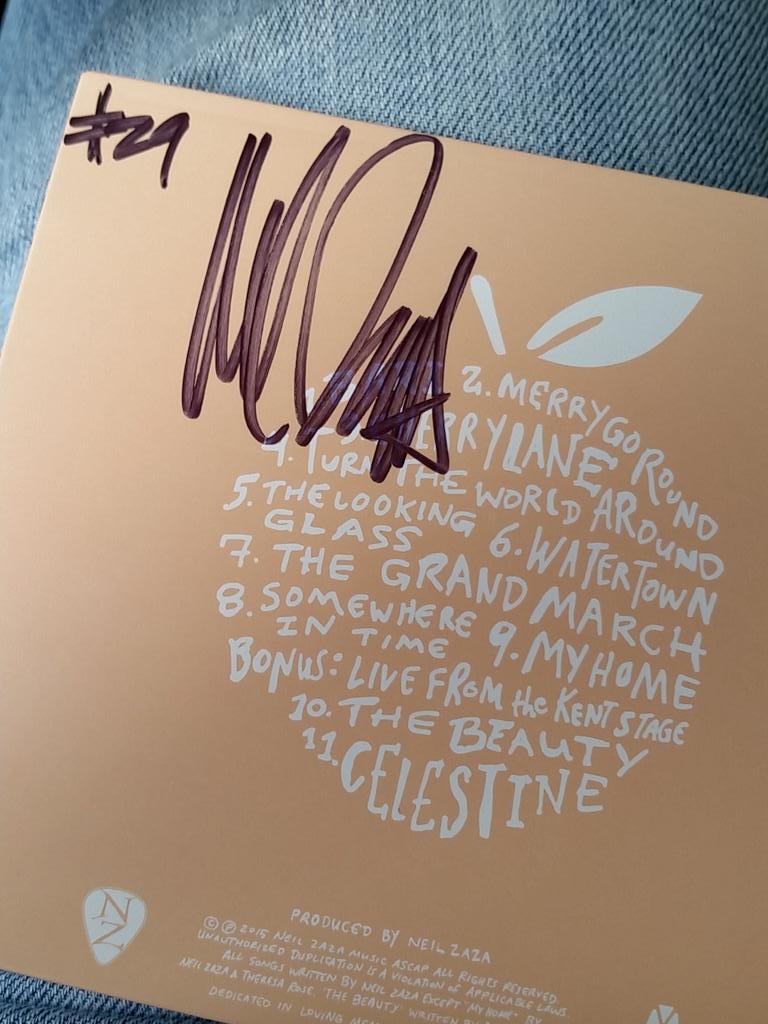 #29
2. MERRY GO ROUND
LANE
4. TURN THE WORLD AROUND
5. THE LOOKING
GLASS 6. WATERTOWN
7. THE GRAND MARCH
8. SOMEWHERE
IN TIME 9. MY HOME
BONUS: LIVE FROM the KENT STAGE
10. THE BEAUTY
11. CELESTINE
NZ
PRODUCED BY NEIL ZAZA
© ℗ 2015 NEIL ZAZA MUSIC ASCAP ALL RIGHTS RESERVED.
UNAUTHORIZED DUPLICATION IS A VIOLATION OF APPLICABLE LAWS.
ALL SONGS WRITTEN BY NEIL ZAZA EXCEPT "MY HOME" BY
NEIL ZAZA & THERESA ROSE. "THE BEAUTY" WRITTEN BY
DEDICATED IN LOVING